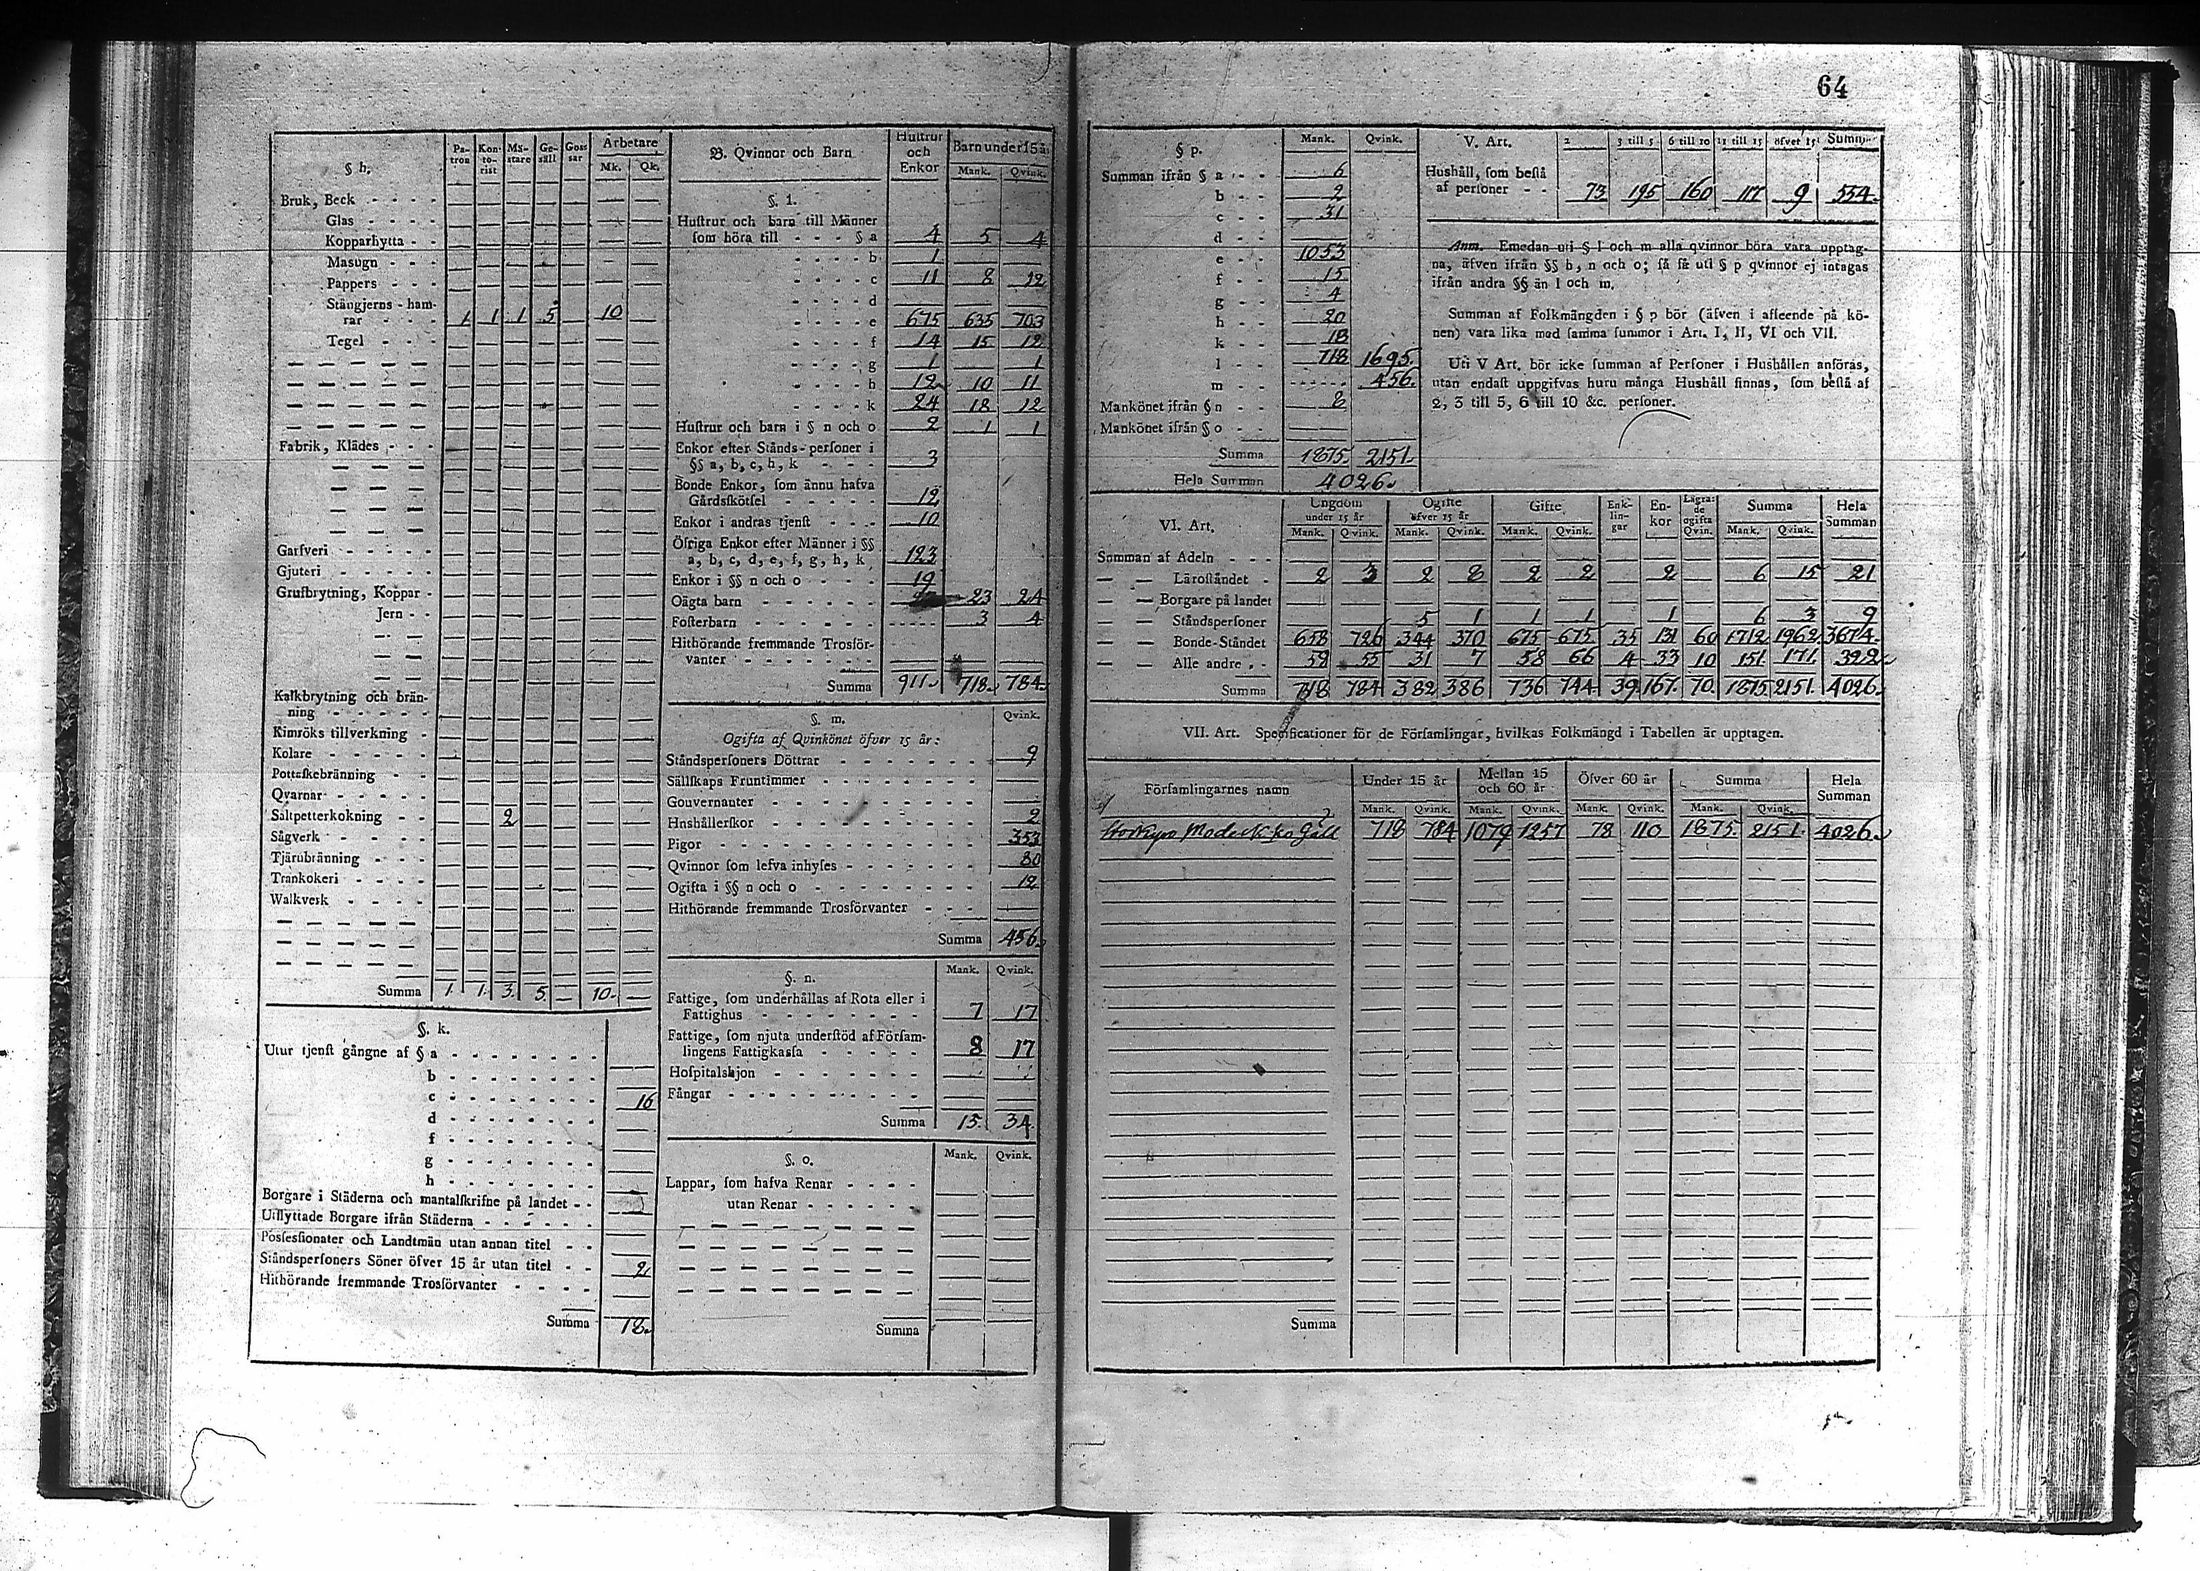 64
§ h.
Pa-tron Kon-to-rist Mä-stare Ge-säll Goss sar Arbetare
Mk. Qk.
Bruk, Beck - - - -
Glas - - - -
Kopparhytta - -
Masugn - - -
Pappers - - -
Stångjerns - ham-
rar - - - 1 1 1 5 — 10 —
Tegel - - -
Fabrik, Klädes - - -
Garfveri - - - - -
Gjuteri - - - - -
Grufbrytning, Koppar -
Jern - -
Kalkbrytning och brän-
ning - - - - - -
Kimröks tillverkning -
Kolare - - - - -
Pottaskebränning - -
Qvarnar - - - - -
Saltpetterkokning - - 2
Sågverk - - - - -
Tjärubränning - - -
Trankokeri - - - -
Walkverk - - - -
Summa 1. 1. 3. 5. — 10. —
§. k.
Utur tjenst gångne af § a - - - - - - - -
b - - - - - - - -
c - - - - - - - - 16
d - - - - - - - -
f - - - - - - - -
g - - - - - - - -
h - - - - - - - -
Borgare i Städerna och mantalskrifne på landet - -
Utflyttade Borgare ifrån Städerna - - - - - -
Possessionater och Landtmän utan annan titel - -
Ståndspersoners Söner öfver 15 år utan titel - - 2
Hithörande fremmande Trosförvanter - - - -
Summa 18.
B. Qvinnor och Barn Hustrur och Enkor Barn under 15 år
Mank. Qvink.
§. l.
Hustrur och barn till Männer
som höra till - - - § a 4 5 4
- - - - b 1
- - - - c 11 8 12
- - - - d
- - - - e 675 635 703
- - - - f 14 15 12
- - - - g 1 — 1
- - - - h 12 10 11
- - - - k 24 18 12
Hustrur och barn i § n och o 2 1 1
Enkor efter Stånds-personer i
§§ a, b, c, h, k - - - 3
Bonde Enkor, som ännu hafva
Gårdsskötsel - - - - - 12
Enkor i andras tjenst - - - 10
Öfriga Enkor efter Männer i §§
a, b, c, d, e, f, g, h, k 123
Enkor i §§ n och o - - - - 19
Oägta barn - - - - - - 23 24
Fosterbarn - - - - - - 3 4
Hithörande fremmande Trosför-
vanter - - - - - - -
Summa 911. 718. 784.
§. m. Qvink.
Ogifta af Qvinkönet öfver 15 år:
Ståndspersoners Döttrar - - - - - - - 9
Sällskaps Fruntimmer - - - - - - - -
Gouvernanter - - - - - - - - -
Hushållerskor - - - - - - - - - 2
Pigor - - - - - - - - - - - 353
Qvinnor som lefva inhyses - - - - - - 80
Ogifta i §§ n och o - - - - - - - - 12
Hithörande fremmande Trosförvanter - - -
Summa 456.
§. n. Mank. Qvink.
Fattige, som underhållas af Rota eller i
Fattighus - - - - - - - - 7 17
Fattige, som njuta understöd af Försam-
lingens Fattigkassa - - - - - 8 17
Hospitalshjon - - - - - - - -
Fångar - - - - - - - - - -
Summa 15. 34.
§. o. Mank. Qvink.
Lappar, som hafva Renar - - - -
utan Renar - - - - - -
Summa
§ p. Mank. Qvink.
Summan ifrån § a - - - 6
b - - 2
c - - 31
d - -
e - - 1053
f - - 15
g - - 4
h - - 20
k - - 18
l - - 718 1695.
m - - - - - - - 456.
Mankönet ifrån § n - - 8
Mankönet ifrån § o - -
Summa 1875. 2151.
Hela Summan 4026.
V. Art. 2 3 till 5 6 till 10 11 till 15 öfver 15 Summ.
Hushåll, som bestå
af personer - - 73 195 160 117 9 554.
Anm. Emedan uti § l och m alla qvinnor böra vara upptag-
na, äfven ifrån §§ h, n och o; så få uti § p qvinnor ej intagas
ifrån andra §§ än l och m.
Summan af Folkmängden i § p bör (äfven i afseende på kö-
nen) vara lika med samma summor i Art. I, II, VI och VII.
Uti V Art. bör icke summan af Personer i Hushållen anföras,
utan endast uppgifvas huru många Hushåll finnas, som bestå af
2, 3 till 5, 6 till 10 &c. personer.
VI. Art. Ungdom under 15 år Ogifte öfver 15 år Gifte Enk-lin-gar En-kor Lägra-de ogifta Qvin. Summa Hela Summan
Mank. Qvink. Mank. Qvink. Mank. Qvink. Mank. Qvink.
Summan af Adeln - - -
— — Läroståndet - 2 3 2 8 2 2 2 6 15 21
— — Borgare på landet
— — Ståndspersoner 5 1 1 1 1 6 3 9
— — Bonde-Ståndet 658 726 344 370 675 675 35 131 60 1712 1962 3674.
— — Alle andre - - 58 55 31 7 58 66 4 33 10 151. 171. 322.
Summa 718 784 382 386 736 744 39 167. 70. 1875 2151. 4026.
VII. Art. Specificationer för de Församlingar, hvilkas Folkmängd i Tabellen är upptagen.
Församlingarnes namn Under 15 år Mellan 15 och 60 år Öfver 60 år Summa Hela Summan
Mank. Qvink. Mank. Qvink. Mank. Qvink. Mank. Qvink.
Storkyro Moderkyrkogäll 718 784 1079 1257 78 110 1875. 2151. 4026.
Summa